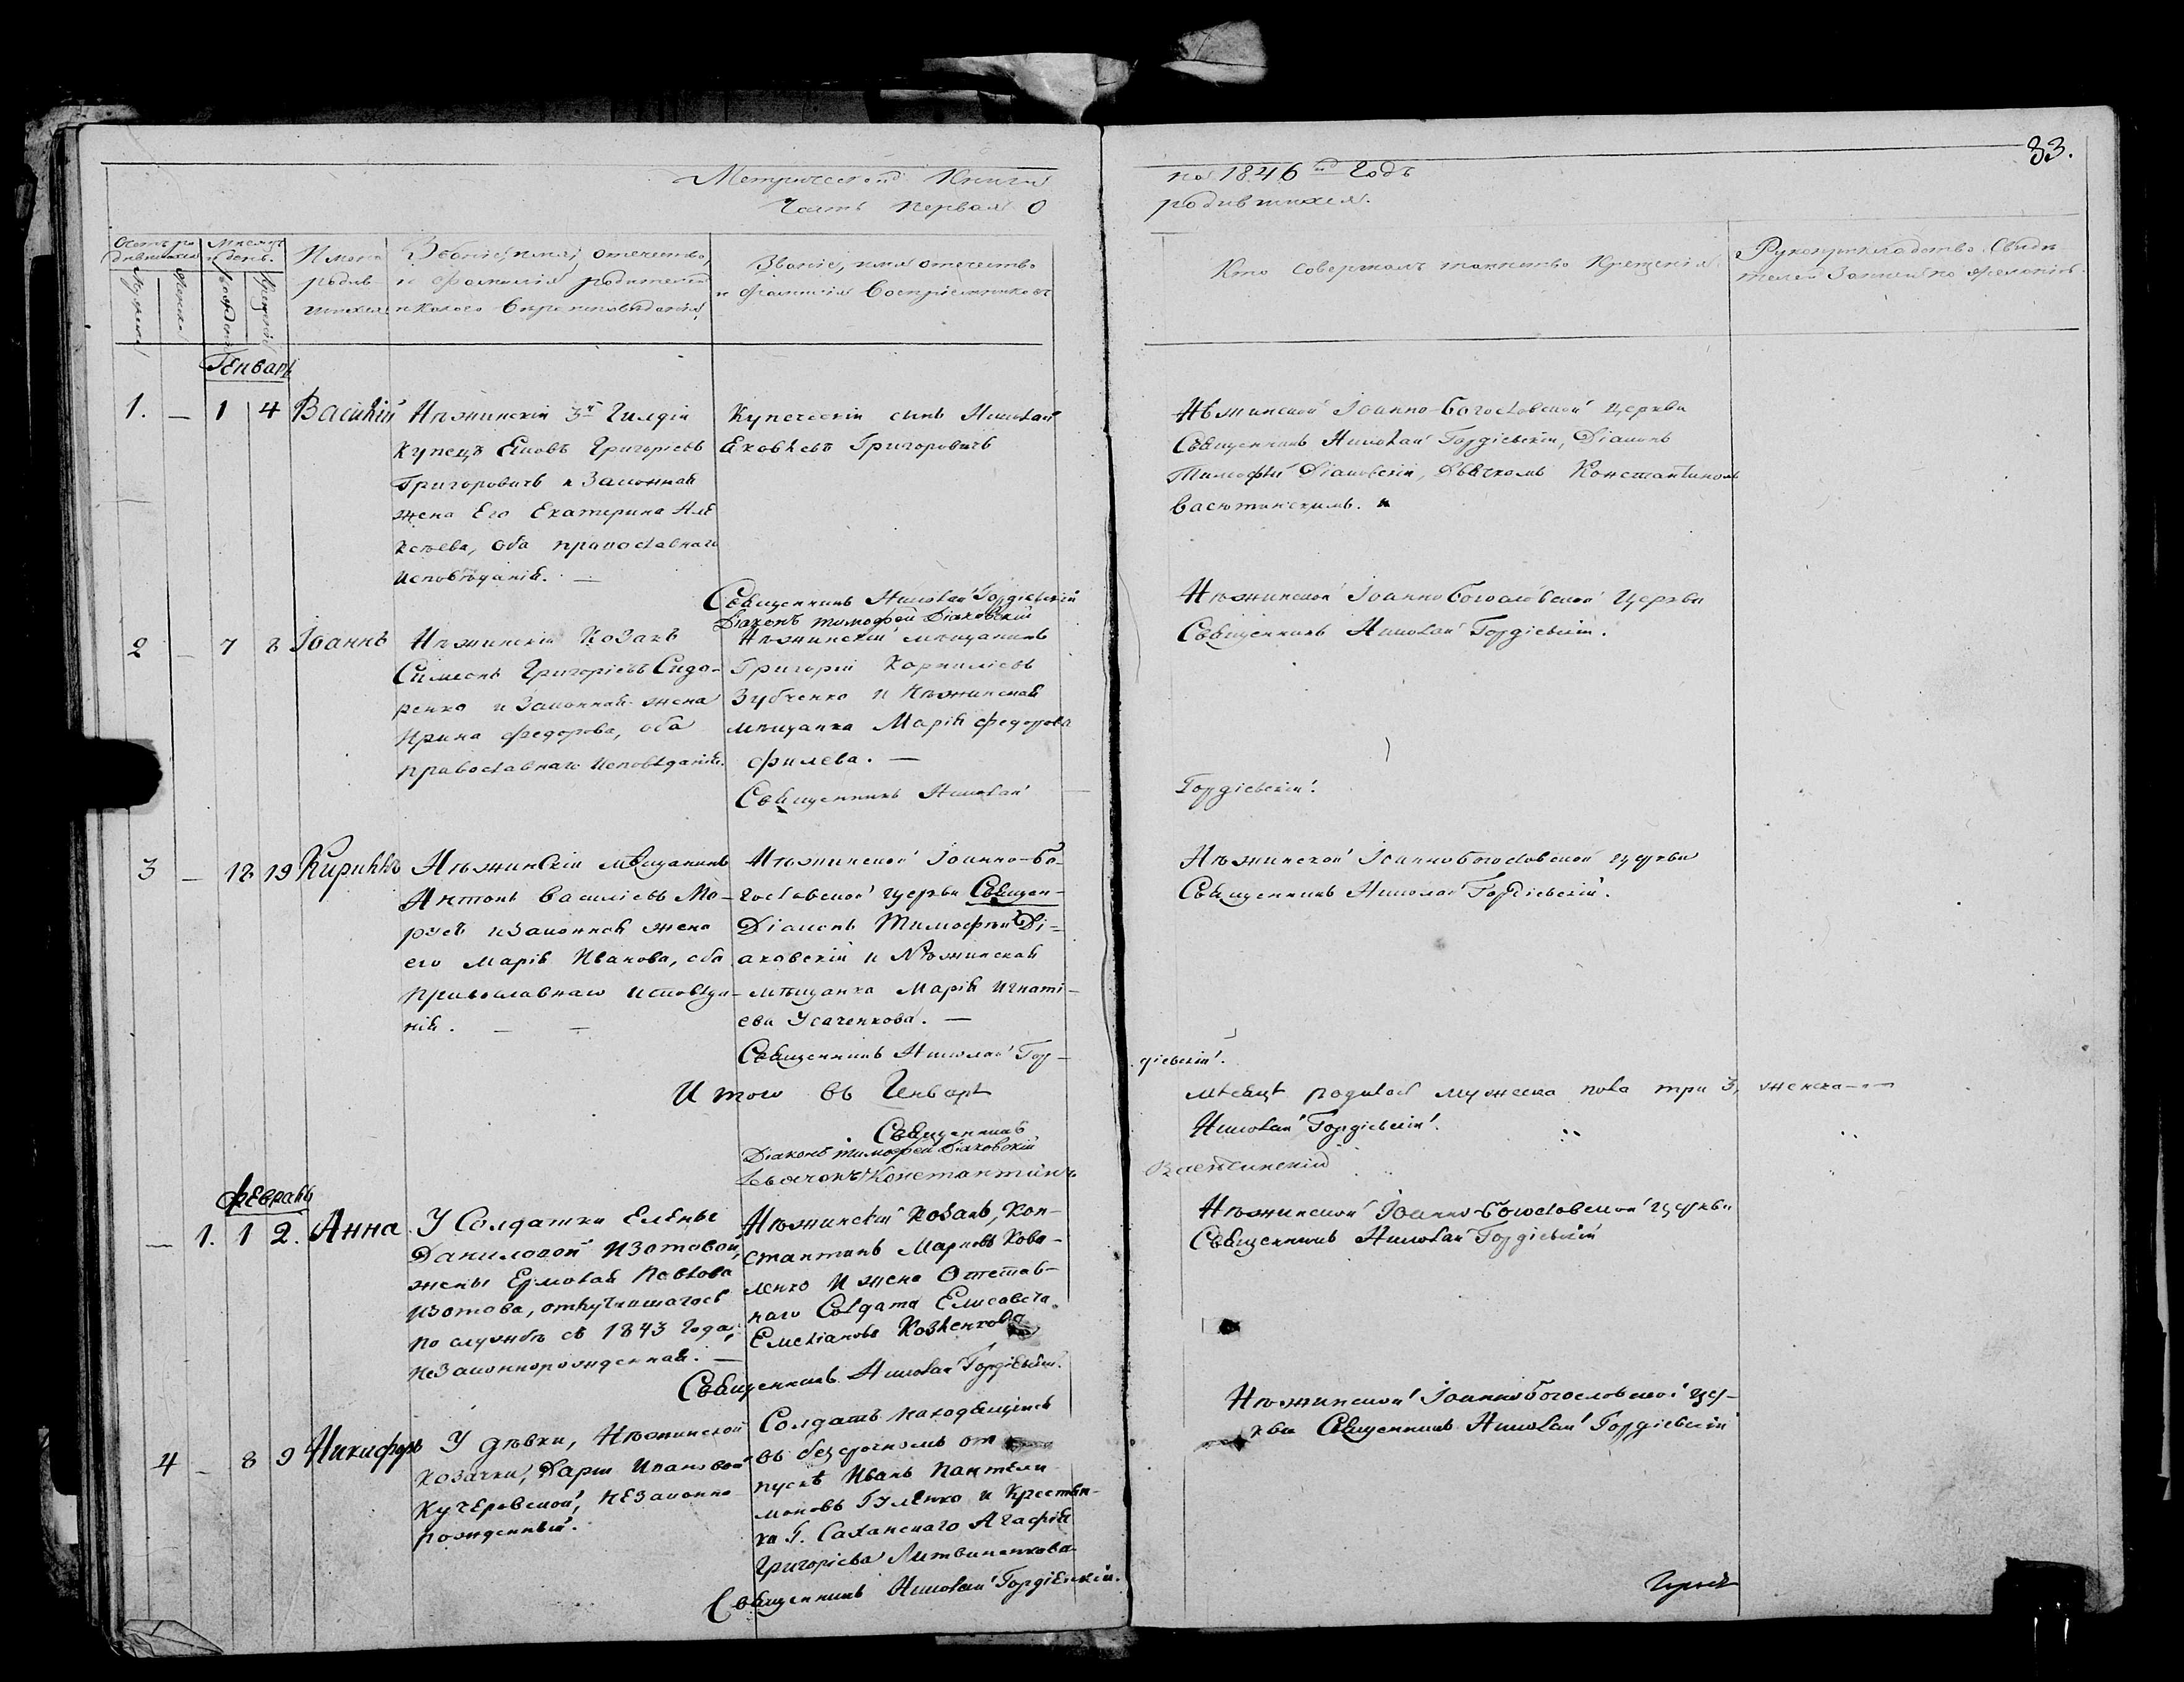 33.
Метрической Книги
на 1846й Годъ
Часть первая О
родившихся.
Счетъ ро
дившихся
Мѣсяцъ
и день.
Мужеска
Женска
Рожденія
Крещенія
Имена
родив
шихся
Званіе, имя, отечество,
и фамилія родителей
и какого вѣроисповѣданія,
Званіе, имя отечество
и фамилія воспріемниковъ
Кто совершалъ таинство Крещенія
Рукоприкладство Свидѣ
телей записи по желанію.
Генварь
1. — 1 4 Василій
Нѣжинскій 3й Гилдіи
купецъ Ековъ Григоріевъ
Григоровичъ и Законная
жена Его Екатерина Але
ксѣева, оба православнаго
исповѣданія. —
Купеческій сынъ Николай
Еховлевъ Григоровичъ
Священникъ Николай Гордіевскій
Діаконъ Тимофей Діаковскій
Нѣжинской Іоанно-Богословской церкви
Священникъ Николай Гордіевскій, Діаконъ
Тимофѣй Діаковскій, Дьячкомъ Константиномъ
Васютинскимъ.
2 — 7 8 Іоаннъ
Нѣжинскій Козакъ
Симеонъ Григоріевъ Сидо-
ренко и Законная жена
Ирина Федорова, оба
православнаго исповѣданія.
Нѣжинскій мѣщанинъ
Григорій Корниліевъ
Зубченко и Нѣжинская
мѣщанка Марія Федорова
Филева. —
Священникъ Николай
Гордіевскій.
Нѣжинской Іоанно Богословской Церкви
Священникъ Николай Гордіевскій.
3 — 18 19 Кириллъ
Нѣжинскій мѣщанинъ
Антонъ Василіевъ Мо-
и Законная жена
его Марія Иванова, оба
Православнаго исповѣда-
нія. — —
Нѣжинской Іоанно-Бо-
гословской церкви Священ-
Діаконъ Тимофей Ді-
аковскій и Нѣжинская
мѣщанка Марія Игнаті-
ева Усаченкова. —
Священникъ Николай Гор-
діевскій.
Нѣжинской Іоанно Богословской церкви
Священникъ Николай Гордіевскій.
Итого въ Генварѣ
мѣсяцѣ родилось мужеска пола три 3, женска —
Священникъ
Николай Гордіевскій.
Діаконъ Тимофей Діаковскій
Дьячокъ Константинъ
Васютинскій
Февраль
— 1. 1 2. Анна
У Солдатки Елены
Даниловой Изотовой,
жены Ермолая Павлова
Изотова, отлучившагося
по службѣ съ 1843 года,
незаконнорожденная. —
Нѣжинскій Козакъ, Кон-
стантинъ Марковъ Кова-
ленко и жена Отстав-
наго Солдата Елисавета
Емеліанова Козленкова
Священникъ Николай Гордіевскій.
Нѣжинской Іоанно-Богословской церкви
Священникъ Николай Гордіевскій
4 — 8 9 Никифоръ
У дѣвки, Нѣжинской
козачки, Дарьи Ивановой
Кучеровской, незаконно
рожденный.
Солдатъ находящійся
въ безсрочномъ от
пускѣ Иванъ Пантели
моновъ Гуленко и Крестьян-
ка Г. Саханскаго Агафія
Григоріева Литвиненкова
Священникъ Николай Гордіевскій.
Нѣжинской Іоанно Богословской це-
ркви Священникъ Николай Гордіевскій